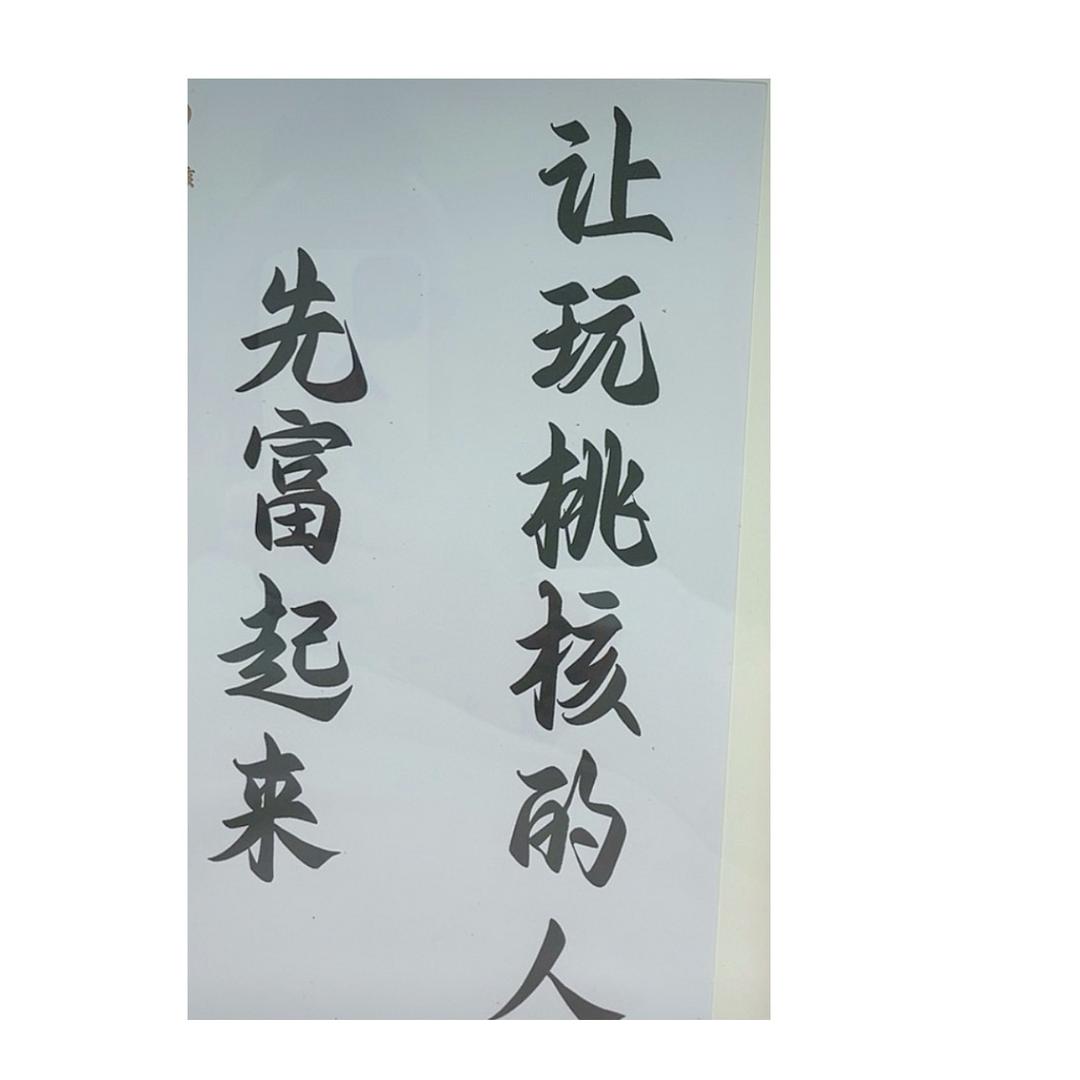 让玩桃核的人
先富起来